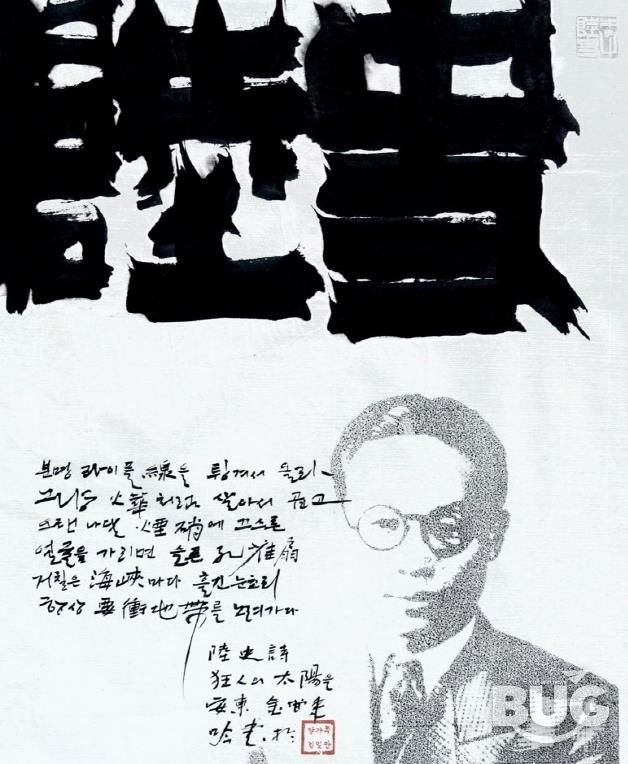 분명 라이플 線을 튕겨서 올라
그냥 火華처럼 살아서 곱고
오랜 나달 煙硝에 끄스른
얼굴을 가리면 슬픈 孔雀扇
거칠은 海峽마다 흘긴 눈초리
항상 要衝地帶를 노려가다
陸史詩
狂人의 太陽을
安東 金
BUG